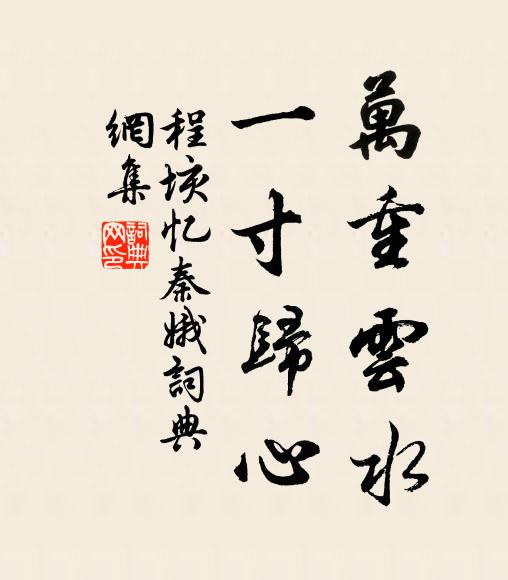 萬重雲水
一寸歸心
程垓忆秦娥詞典
網集
詞典
网印